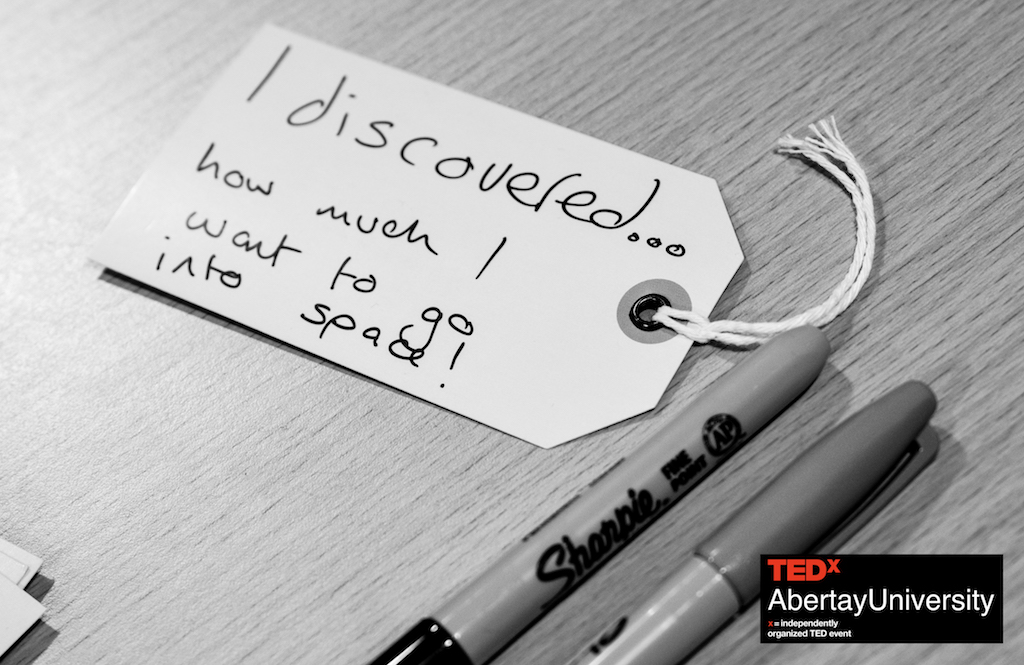 I discovered...
how much I
want to go
into space!
Sharpie
FINE
POINT
AP
TEDx
AbertayUniversity
x = independently
organized TED event